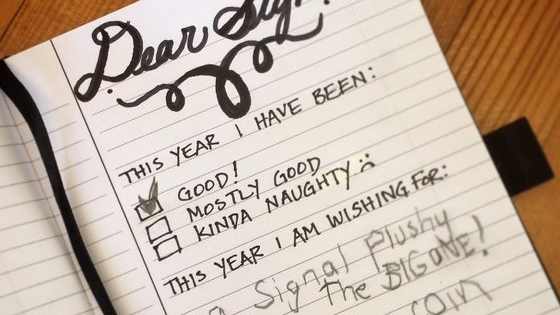 Dear Sign
THIS YEAR I HAVE BEEN:
GOOD!
MOSTLY GOOD
KINDA NAUGHTY :(
THIS YEAR I AM WISHING FOR:
a Signal Plushy
The BIG ONE!
coin